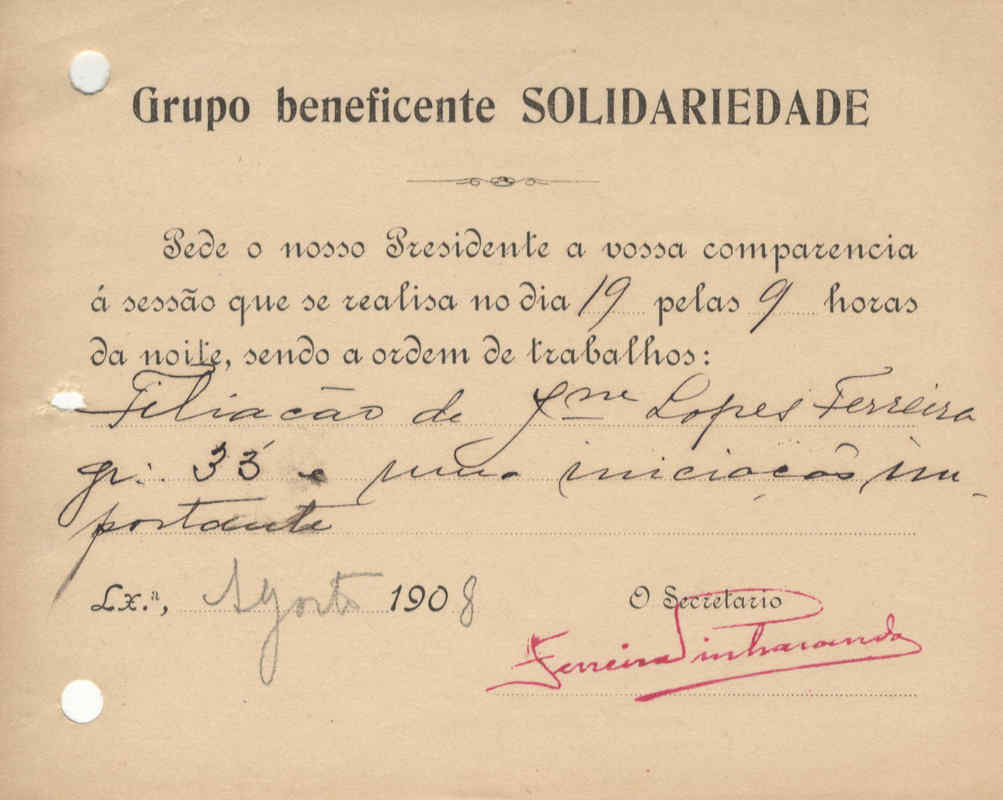 Grupo beneficente SOLIDARIEDADE
Pede o nosso Presidente a vossa comparencia
á sessão que se realisa no dia 19 pelas 9 horas
da noite, sendo a ordem de trabalhos:
Filiacão de Lopes Ferreira
gr∴ 33 e uma iniciação im-
portante
Lx.ª, Agosto 1908
O Secretario
Ferreira Pinharanda